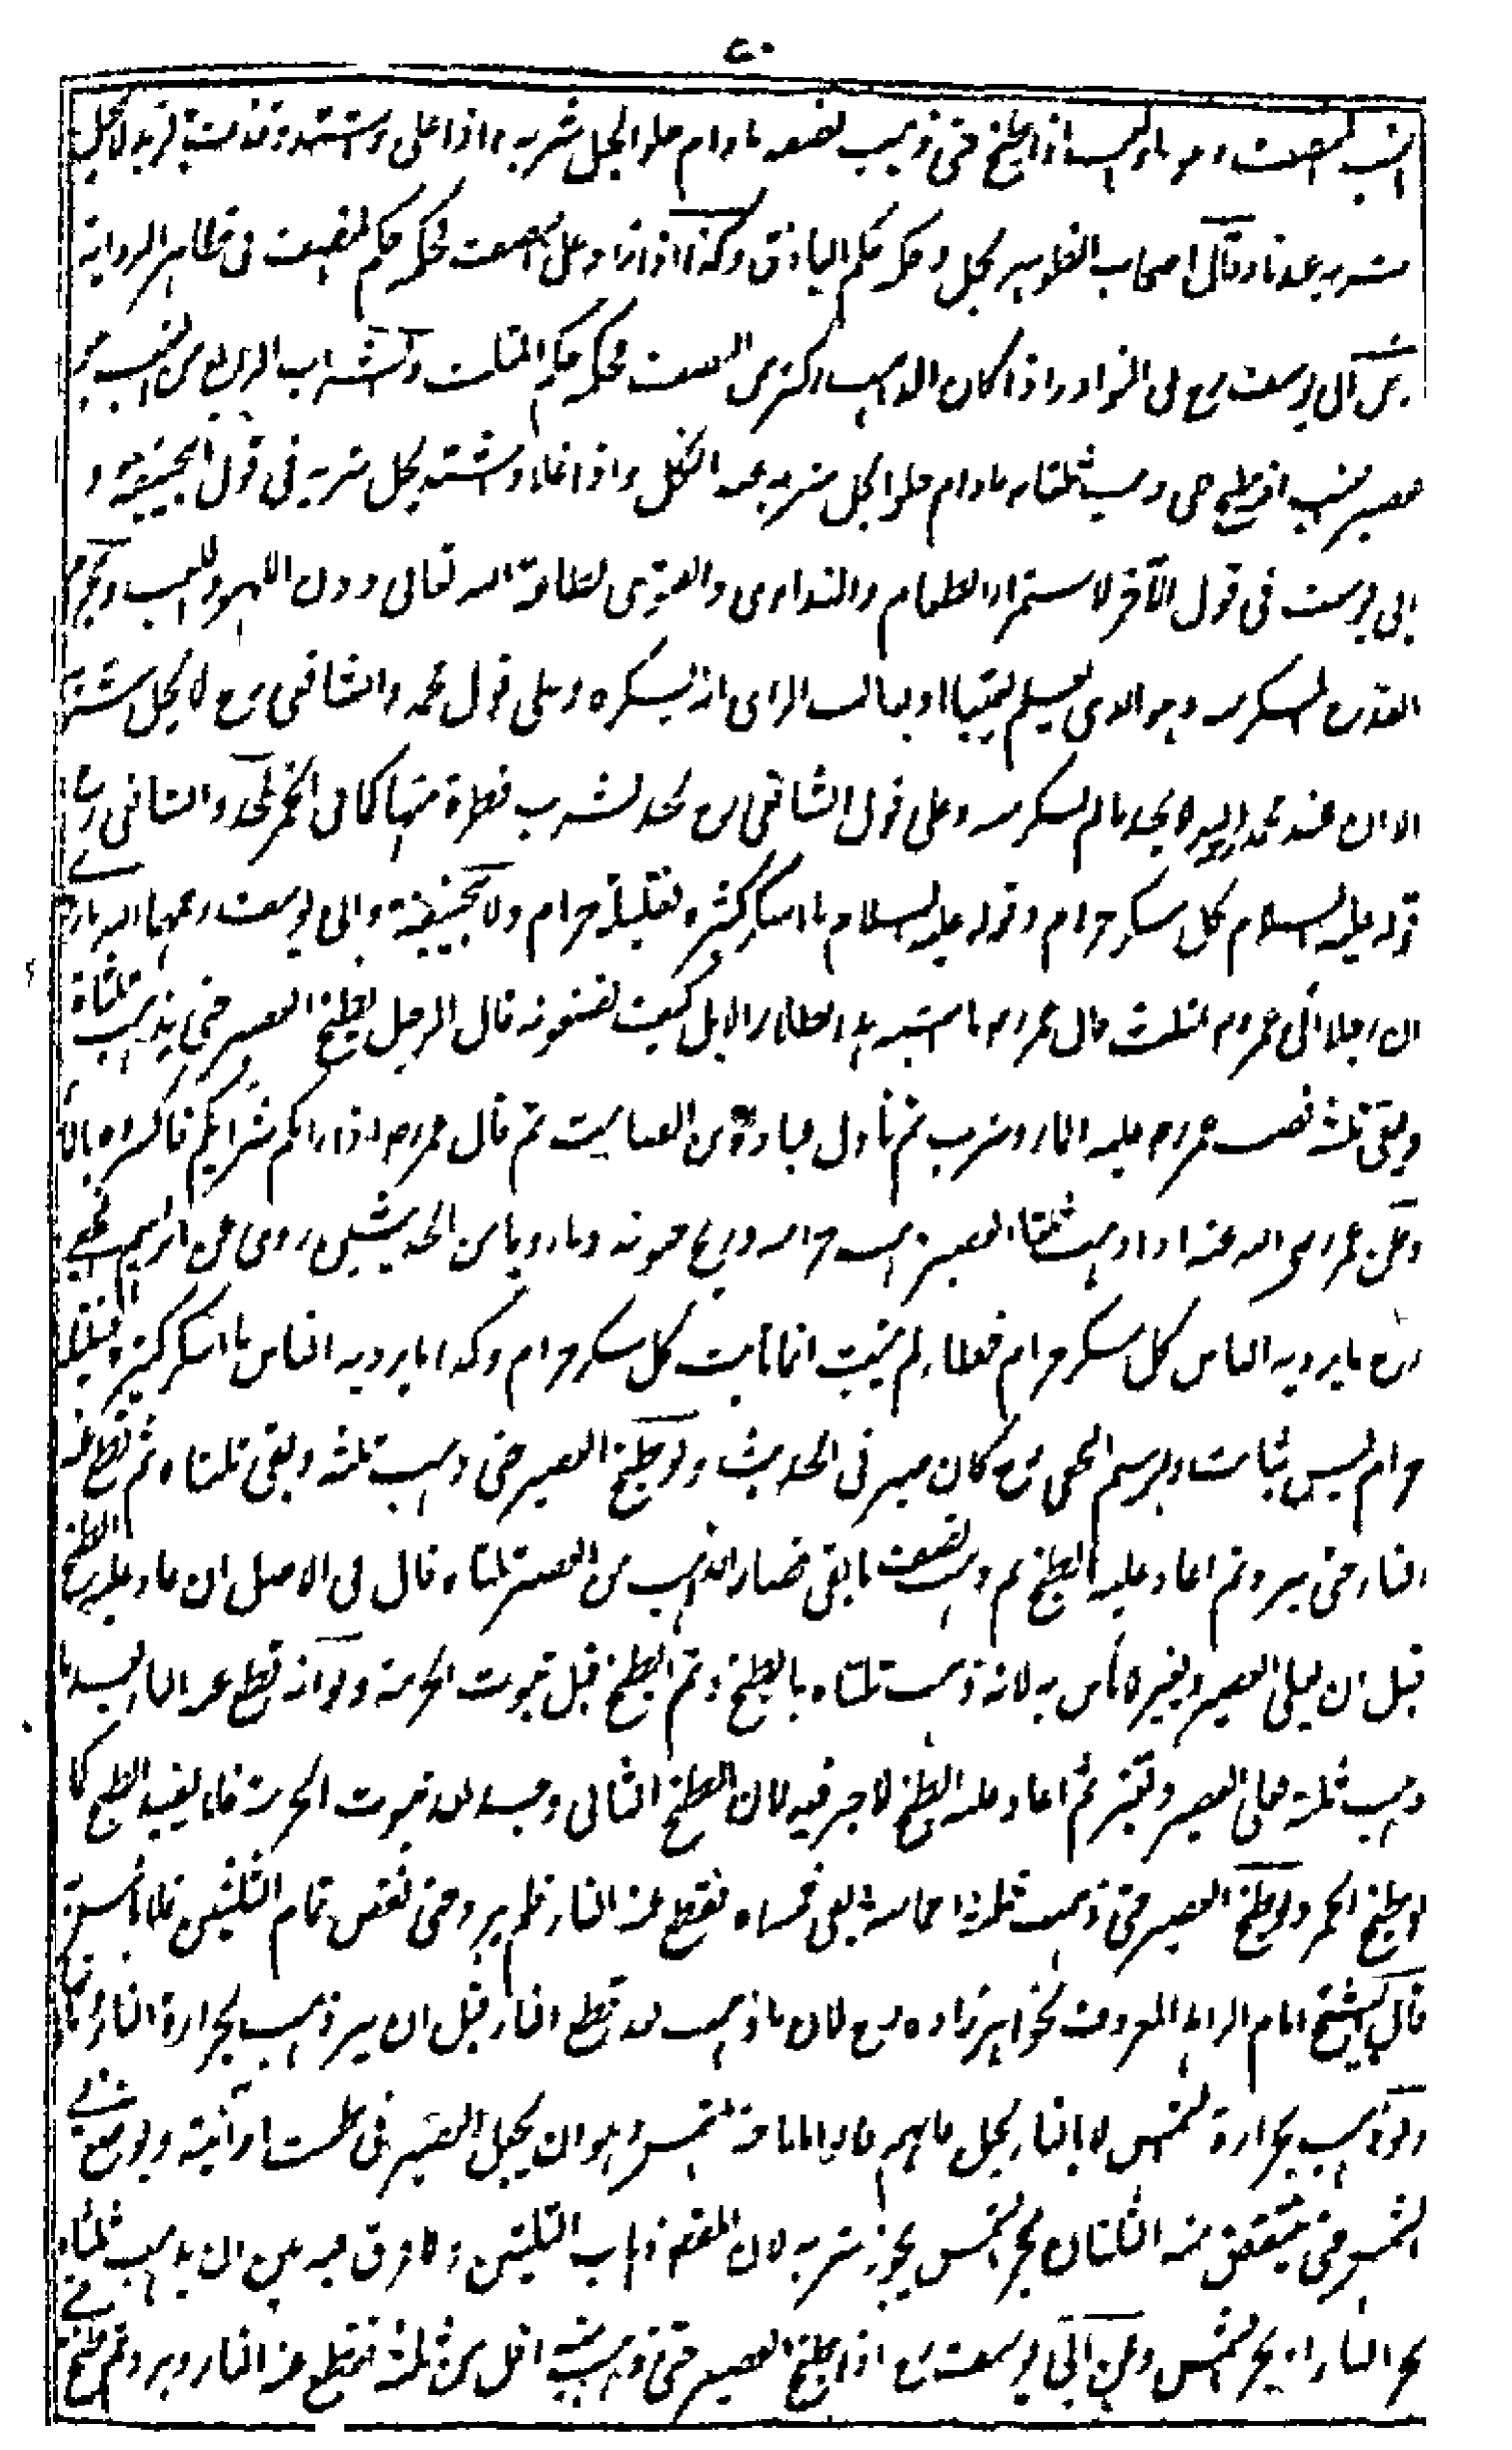 ٧٠
العنب المنصف وهو ماء العنب اذا طبخ حتى ذهب نصفه مادام حلوا يحل شربه واذا غلى واشتد وقذف بالزبد لا يحل
شربه عندنا وقال اصحاب الظواهر يحل وحكمه حكم الباذق وكذا اذا زاد على النصف فحكمه حكم المنصف فى ظاهر الرواية
وعن ابى يوسف رح فى النوادر اذا كان الذاهب اكثر من النصف فحكمه حكم المثلث والشراب الرابع من العنب
عصير العنب اذا طبخ حتى ذهب ثلثاه مادام حلوا يحل شربه عند الكل واذا غلا واشتد يحل شربه فى قول ابيحنيفة و
ابى يوسف فى قول الآخر لاستمراء الطعام والتداوى والتقوى لطاعة الله تعالى دون اللهو واللعب ويحرم
القدح المسكر منه وهو الذى يعلم يقينا او بغالب الراى انه يسكره وعلى قول محمد والشافعى رح لا يحل شربه
الا ان عند محمد لا يحد مالم يسكر منه وعلى قول الشافعى رح يحد بشرب قطرة منها كما فى الخمر لمحمد والشافعى
قوله عليه السلام كل مسكر حرام وقوله عليه السلام ما اسكر كثيره فقليله حرام ولابيحنيفة وابى يوسف رحمهما الله ما روى
ان رجلا اتى عمر رض بمثلث قال عمر رض ما اشبه هذا بطلاء الابل كيف تصنعونه قال الرجل يطبخ العصير حتى يذهب ثلثاه
ويبقى ثلثه فصب عمر رض عليه الماء وشرب ثم ناول عبادة بن الصامت ثم قال عمر رض اذا رابكم شرابكم فاكسروه بالماء
وعن عمر رضى الله عنه اذا ذهب ثلثا العصير ذهب حرامه وريح جنونه وما رويا من الحديثين روى عن ابراهيم النخعى
رح ما يرويه الناس كل مسكر حرام خطاء لم يثبت انما ثابت كل سكر حرام وكذا ما يرويه الناس ما اسكر كثيره فقليله
حرام ليس بثابت وابراهيم النخعى رح كان حبر فى الحديث ولو طبخ العصير حتى ذهب ثلثه وبقى ثلثاه ثم قطع عنه
النار حتى برد ثم اعاد عليه الطبخ ثم ذهب نصف ما بقى فصار الذاهب من العصير ثلثاه قال فى الاصل ان عاد عليه الطبخ
قبل ان يغلى العصير ويتغير لا باس به لانه ذهب ثلثاه بالطبخ وتم الطبخ قبل ثبوت الحرمة ولو انه قطع عنه النار بعد ما
ذهب ثلثه فغلى العصير وتغير ثم اعاد عليه الطبخ لا خير فيه لان الطبخ الثانى وجد بعد ثبوت الحرمة فلا يفيد الطبخ كما
لو طبخ الخمر ولو طبخ العصير حتى ذهب ثلثة اخماسه وبقى خمساه فقطع عنه النار فلم يبرد حتى نقص تمام الثلثين فلا باس به
قال الشيخ الامام الزاهد المعروف بخواهرزاده رح لان ما ذهب بعد قطع النار قبل ان يبرد ذهب بحرارة النار
ولو ذهب بحرارة الشمس لا بالنار يحل وهو ان يجعل العصير فى طست او آنية ويوضع فى
الشمس حتى ينقص منه الثلثان بحر الشمس يجوز شربه لان المقصود ذهاب الثلثين ولا فرق فيه بين ان يذهب ثلثاه
بحر النار او بحر الشمس وعن ابى يوسف رح اذا طبخ العصير حتى ذهب منه اقل من ثلثه فقطع عنه النار وبرد ثم طبخ